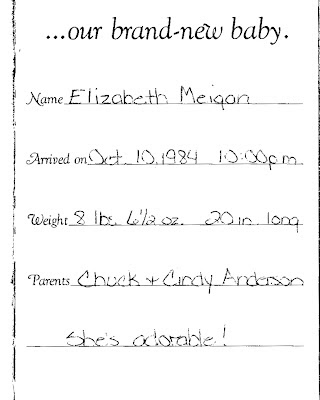 ...our brand-new baby.
Name Elizabeth Meigan
Arrived on Oct. 10, 1984 10:00 p.m.
Weight 8 lbs. 6 1/2 oz. 20 in. long
Parents Chuck + Cindy Anderson
She's adorable!